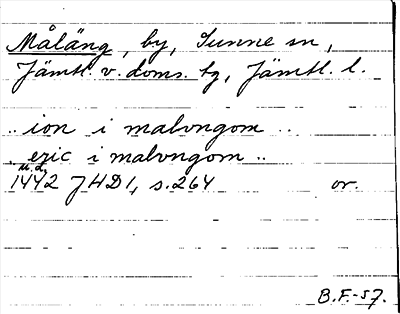 Måläng, by, Sunne sn,
Jämtl. v. doms. tg, Jämtl. l.
.. ion i malvngom ..
.. eric i malvngom ..
1442 JHD1, s. 264 or.
B.F.-57.